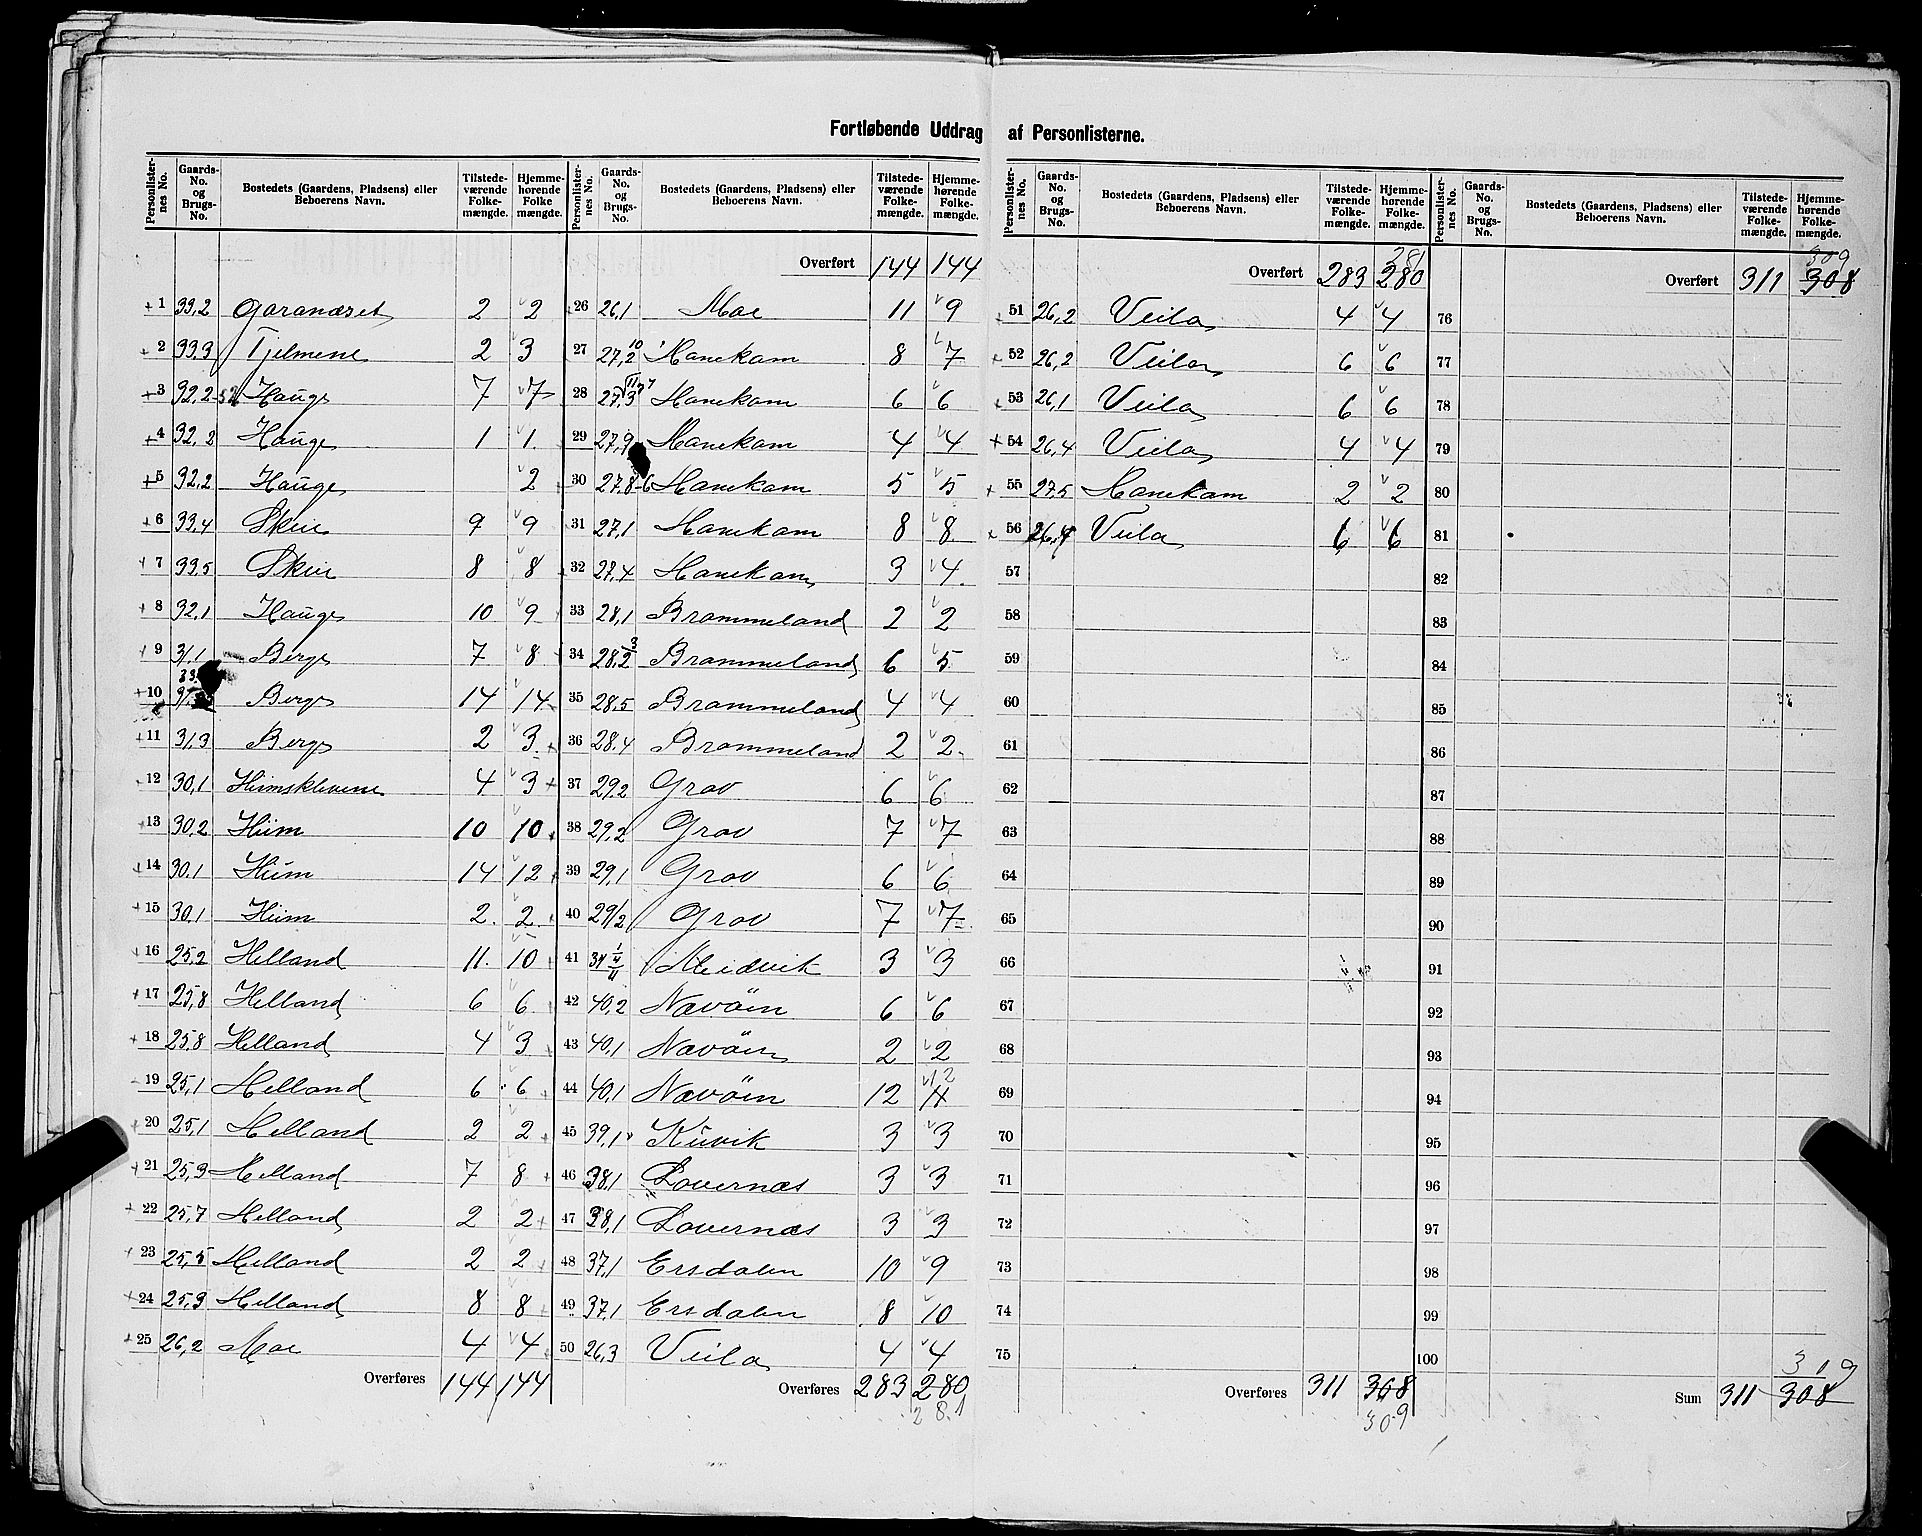 Fortløbende Uddrag af Personlisterne.
Personlister- nes No. | Gaards- No. og Brugs- No. | Bostedets (Gaardens, Pladsens) eller Beboerens Navn. | Tilstede- værende Folke- mængde. | Hjemme- hørende Folke mængde.
1 33,2 Garanæset 2 2
2 33,3 Tjelmene 2 3
3 32,2 Hauge 7 7
4 32,2 Hauge 1 1
5 32,2 Hauge 2
6 33,4 Skeie 9 9
7 33,5 Skeie 8 8
8 32,1 Hauge 10 9
9 31,1 Berge 7 8
10 Berge 14 14
11 31,3 Berge 2 3
12 30,1 Heimsklevene 4 3
13 30,2 Heim 10 10
14 30,1 Heim 14 12
15 30,1 Heim 2 2
16 25,2 Helland 11 10
17 25,8 Helland 6 6
18 25,8 Helland 4 3
19 25,1 Helland 6 6
20 25,1 Helland 2 2
21 25,3 Helland 7 8
22 25,7 Helland 2 2
23 25,5 Helland 2 2
24 25,3 Helland 8 8
25 26,2 Moe 4 4
Overføres 144 144
Personlister- nes No. | Gaards- No. og Brugs- No. | Bostedets (Gaardens, Pladsens) eller Beboerens Navn. | Tilstede- værende Folke- mængde. | Hjemme- hørende Folke- mængde.
Overført 144 144
26 26,1 Moe 11 9
27 27,2 10 Hanekam 8 7
28 27,3 Hanekam 6 6
29 27,9 Hanekam 4 4
30 27,8-6 Hanekam 5 5
31 27,1 Hanekam 8 8
32 27,4 Hanekam 3 4
33 28,1 Brammeland 2 2
34 28,2 3 Brammeland 6 5
35 28,5 Brammeland 4 4
36 28,4 Brammeland 2 2
37 29,2 Grov 6 6
38 29,2 Grov 7 7
39 29,1 Grov 6 6
40 29/2 Grov 7 7
41 Meidvik 3 3
42 40,2 Nævöen 6 6
43 40,1 Nævöen 2 2
44 40,1 Nævöen 12 12
45 39,1 Kuvik 3 3
46 38,1 Lovernæs 3 3
47 38,1 Lovernæs 3 3
48 37,1 Ersdalen 10 9
49 37,1 Ersdalen 8 10
50 26,3 Veila 4 4
Overføres 283 280
281
Personlister- nes No. | Gaards- No. og Brugs- No. | Bostedets (Gaardens, Pladsens) eller Beboerens Navn. | Tilstede- værende Folke- mængde. | Hjemme- hørende Folke- mængde.
281
Overført 283 280
51 26,2 Veila 4 4
52 26,2 Veila 6 6
53 26,1 Veila 6 6
54 26,4 Veila 4 4
55 27,5 Hanekam 2 2
56 26,4 Veila 6 6
57
58
59
60
61
62
63
64
65
66
67
68
69
70
71
72
73
74
75
Overføres 311 308
309
Personlister- nes No. | Gaards- No. og Brugs- No. | Bostedets (Gaardens, Pladsens) eller Beboerens Navn. | Tilstede- værende Folke- mængde. | Hjemme- hørende Folke- mængde.
309
Overført 311 308
76
77
78
79
80
81
82
83
84
85
86
87
88
89
90
91
92
93
94
95
96
97
98
99
100
319
Sum 311 308